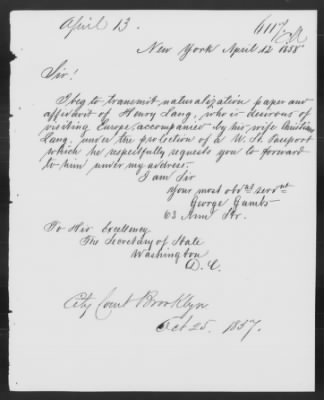 April 13.
New York April 12 1858
Sir!
I beg to transmit naturalization paper and
affidavit of Henry Lang, who is desirous of
visiting Europe, accompanied by his wife
Lang, under the protection of a U. St. Passport
which he respectfully requests you to forward
to him under my address.
I am Sir
Your most obdt servant
George Gambs
63 Ann Str.
To His Excellency
The Secretary of State
Washington
D. C.
City Court Brooklyn
Oct 25. 1857.